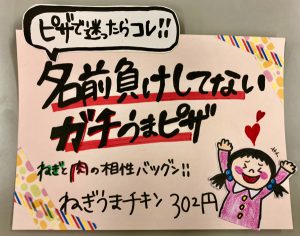 ピザで迷ったらコレ!!
名前負けしてない
ガチうまピザ
ねぎと肉の相性バツグン!!
ねぎうまチキン 302円